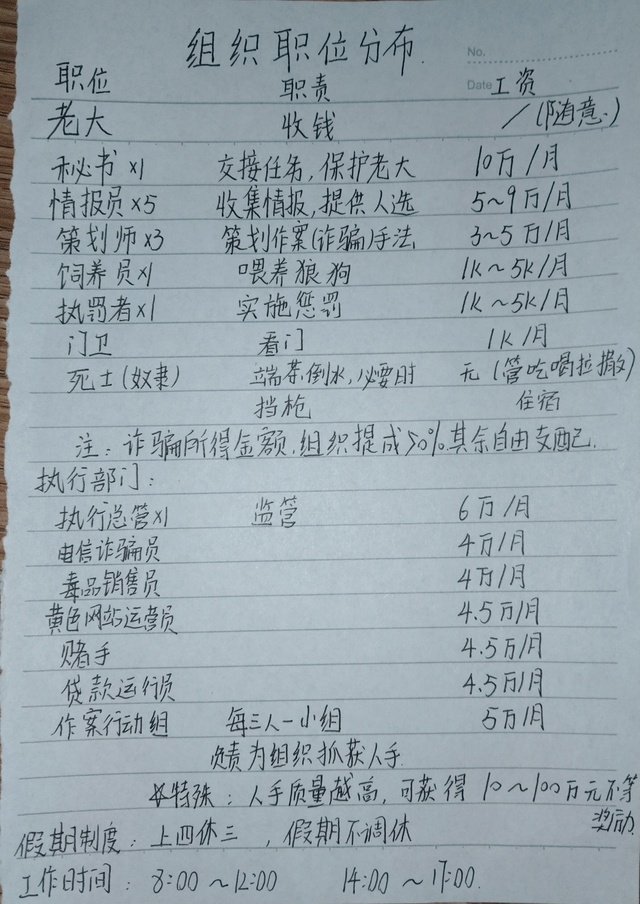 组织职位分布.
No.
职位 职责 Date 工资
老大 收钱 /(随意.)
秘书×1 交接任务,保护老大 10万/月
情报员×5 收集情报,提供人选 5~9万/月
策划师×3 策划作案(诈骗)手法 3~5万/月
饲养员×1 喂养狼狗 1k~5k/月
执罚者×1 实施惩罚 1k~5k/月
门卫 看门 1k/月
死士(奴隶) 端茶倒水,必要时 无(管吃喝拉撒)
挡枪 住宿
注:诈骗所得金额,组织提成50%其余自由支配.
执行部门:
执行总管×1 监管 6万/月
电信诈骗员 4万/月
毒品销售员 4万/月
黄色网站运营员 4.5万/月
赌手 4.5万/月
贷款运行员 4.5万/月
作案行动组 每三人一小组 5万/月
负责为组织抓获人手.
特殊:人手质量越高,可获得10~100万元不等
奖励
假期制度:上四休三,假期不调休
工作时间:8:00~12:00 14:00~17:00.